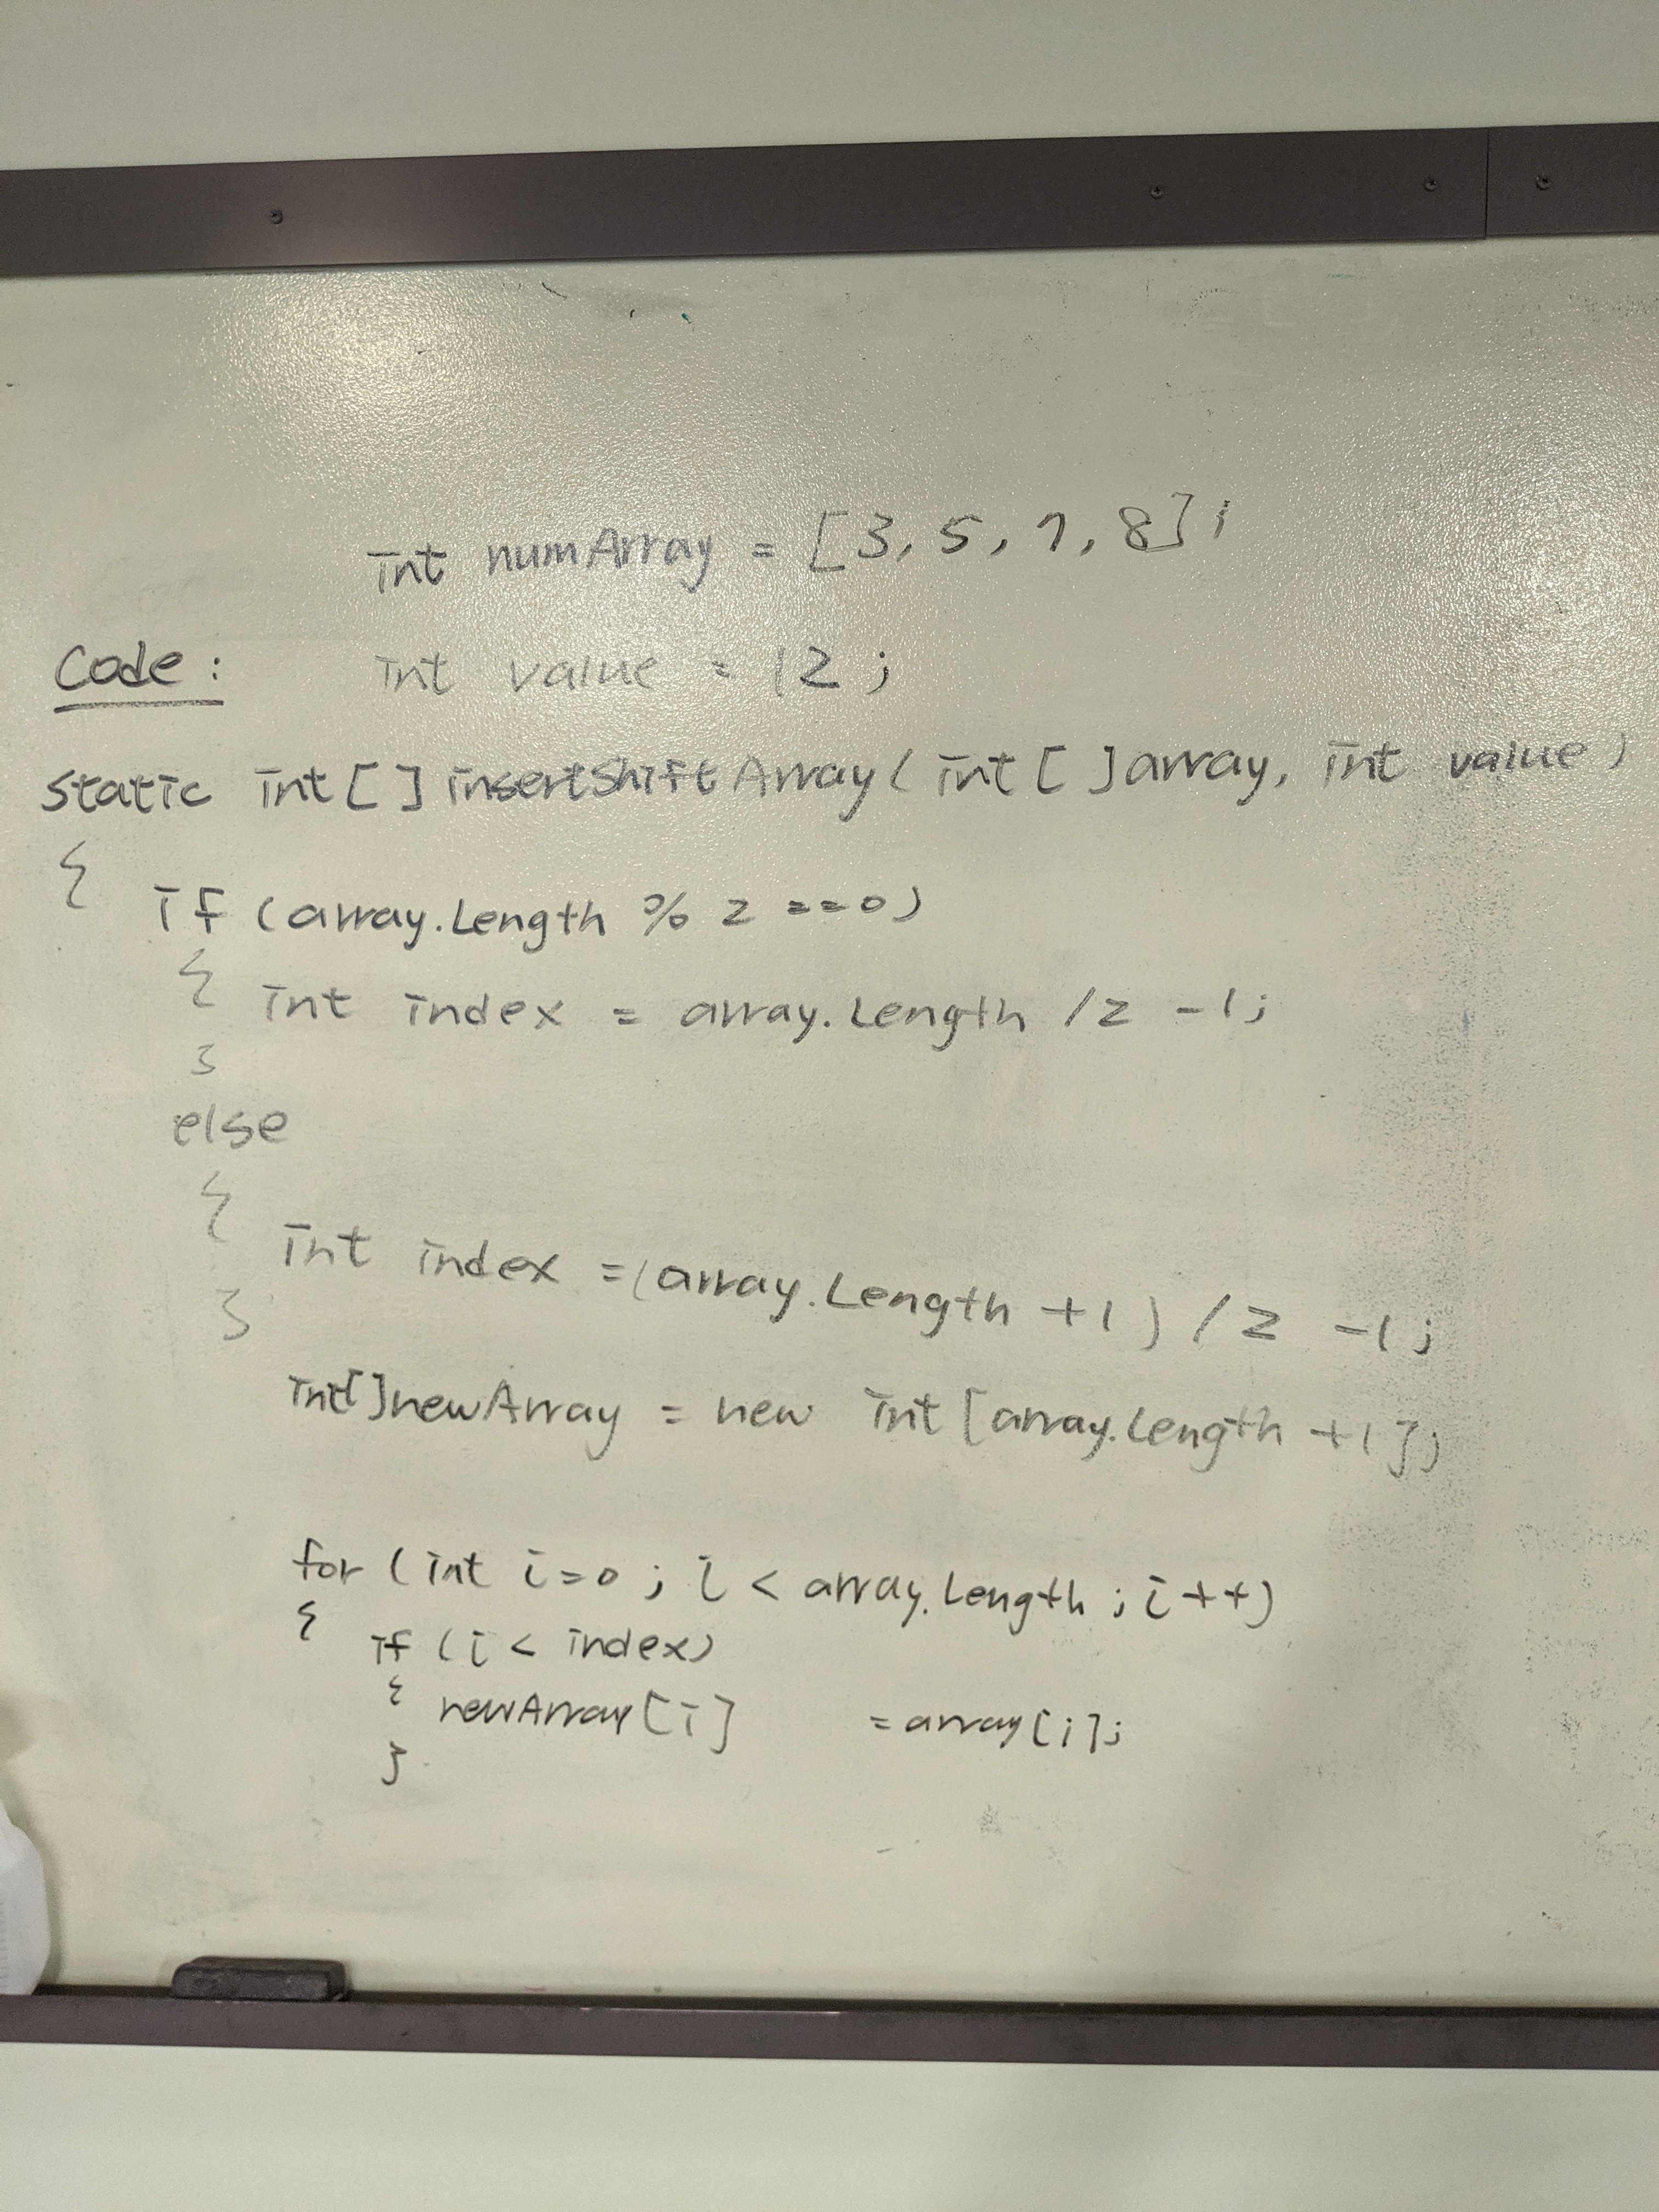 int numArray = [3, 5, 7, 8];
Code: int value = 12;
static int[] insertShiftArray(int[]array, int value)
{ if (array.Length % 2 ==0)
{ int index = array.Length /2 -1;
}
else
{
int index =(array.Length +1) /2 -1;
}
int[]newArray = new int[array.Length +1];
for (int i=0; i < array.Length; i++)
{ if (i < index)
{ newArray[i] = array[i];
}